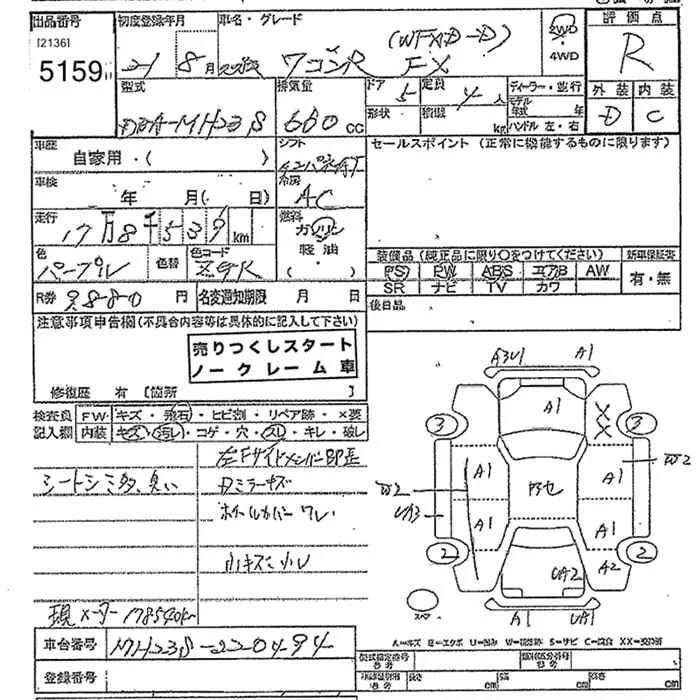 出品番号 初度登録年月 車名・グレード 評価点
[2136]
5159
21 8月 ワゴンR FX
2WD
・
4WD
R
型式 排気量 ドア 定員 ディーラー・並行 外装 内装
DBA-MH23S 660 CC 5 4人 モデル年式 年 D C
形状 積載 kg ハンドル 左・右
車歴 自家用・( ) シフト セールスポイント (正常に機能するものに限ります)
車検 年 月( 日) 冷房
AC
走行 17万8千539 km 燃料
ガソリン
軽油
・
( )
色 パープル 色替 色コード ZGR
装備品 (純正品に限り○をつけてください) 新車保証書
PS PW ABS エアB AW 有・無
SR ナビ TV カワ
R券 9880 円 名変通知期限 月 日 後日品
注意事項申告欄 (不具合内容等は具体的に記入して下さい)
売りつくしスタート
ノークレーム車
修復歴 有 [箇所 ]
検査員 FW キズ・飛石・ヒビ割・リペア跡・×要
記入欄 内装 キズ・汚レ・コゲ・穴・スレ・キレ・破レ
左Fサイドメンバー
シートシミ多、臭い
ミラーキズ
ホイールカバーワレ
小キズ小凹
現メーター178540k
A3U1 A1
A1 X
X
3 3
W2 A1 A1 W2
UA3 A1 A1
2 2
UA2 A2
スペア A1 UA1
車台番号 MH23S-220494
A=キズ E=エクボ U=凹み W=補修跡 S=サビ C=腐食 XX=交換済
登録番号
型式指定番号 類別区分番号
長さ cm 幅 cm 高さ cm